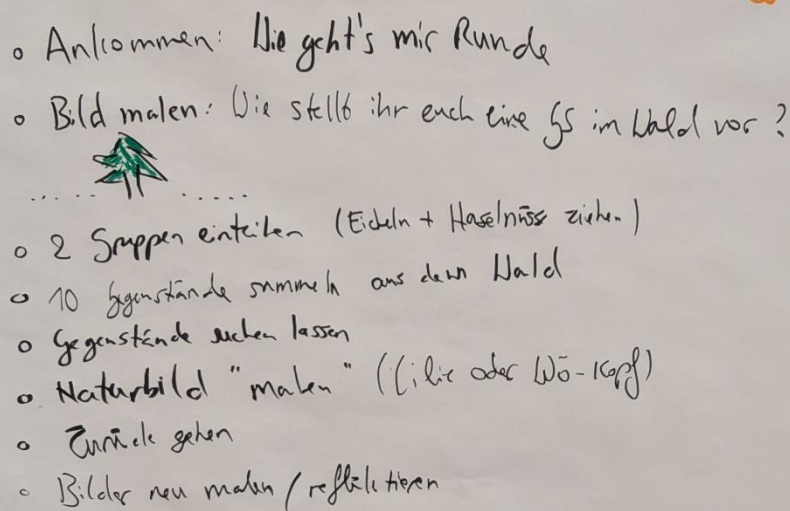 • Ankommen: Wie geht's mir Runde
• Bild malen: Wie stellt ihr euch eine GS im Wald vor?
..... .....
• 2 Gruppen einteilen (Eicheln + Haselnüss ziehen)
• 10 Gegenstände sammeln aus dem Wald
• Gegenstände suchen lassen
• Naturbild "malen" (Lilie oder Wö-Kopf)
• Zurück gehen
• Bilder neu malen / reflektieren